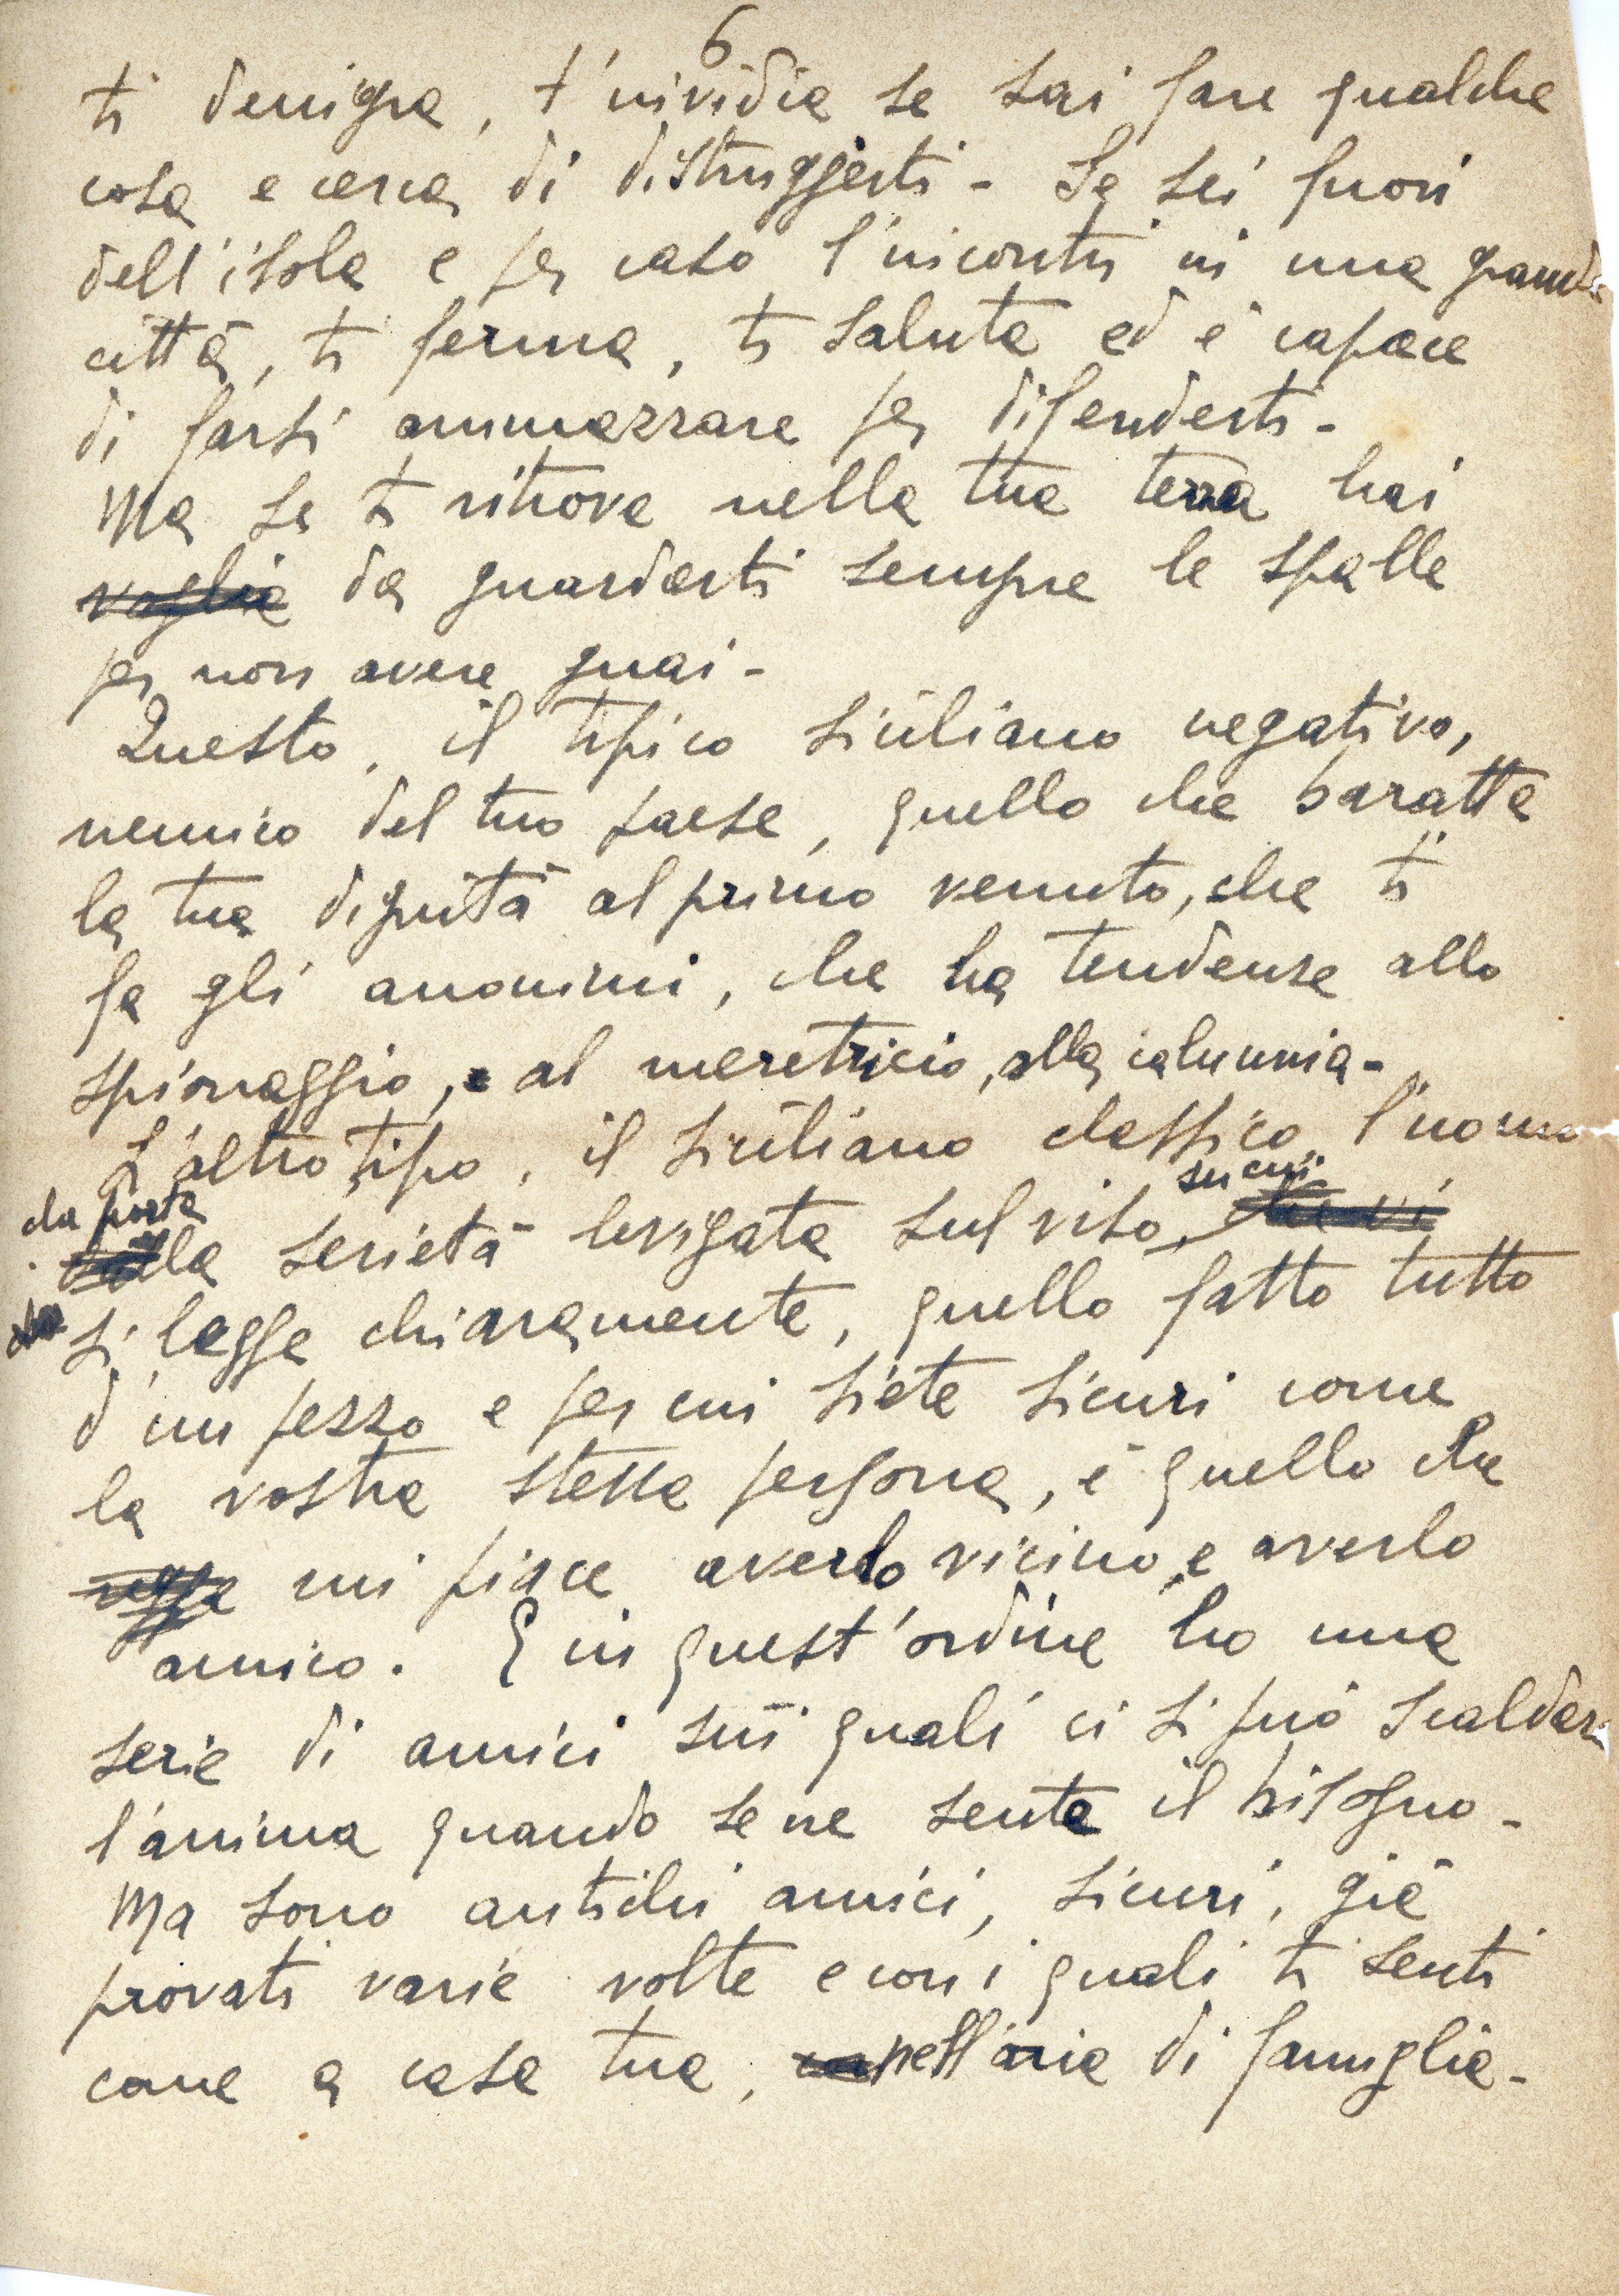 6
ti denigra, t'invidia se sai fare qualche
cosa e cerca di distruggerti - Se sei fuori
dell'isola e per caso l'incontri in una grande
città, ti ferma, ti saluta ed è capace
di farsi ammazzare per difenderti -
Ma se ti ritrova nella tua terra hai
voglia da guardarti sempre le spalle
per non avere guai -
Questo, il tipico siciliano negativo,
nemico del tuo paese, quello che baratta
la tua dignità al primo venuto, che ti
fa gli anonimi, che ha tendenze allo
spionaggio, e al meretricio, alla calunnia -
L'altro tipo, il siciliano classico, l'uomo
da porta su cui
la serietà levigata sul viso, che vi
si legge chiaramente, quello fatto tutto
d'un pezzo e per cui siete sicuri come
la vostra stessa persona, è quello che
mi piace averlo vicino e averlo
amico. E in quest'ordine ho una
serie di amici sui quali ci si può scaldare
l'anima quando se ne sente il bisogno -
Ma sono antichi amici, sicuri, già
provati varie volte e con i quali ti senti
come a casa tua, nell'aria di famiglia -